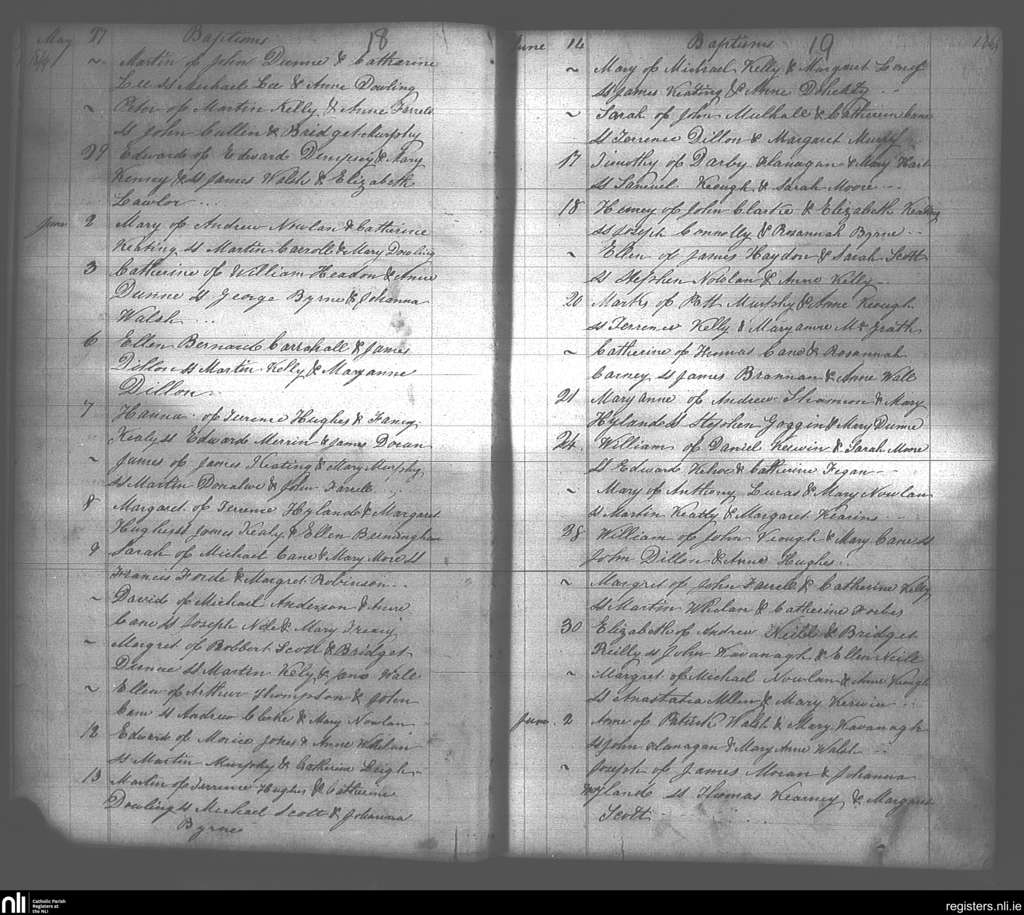 May 27 Baptisms 18
~ Martin of John Dunne & Catharine
Lee Ss Michael Lee & Anne Dowling
~ Peter of Martin Kelly & Anne Farrell
Ss John Cullen & Bridget Murphy
29 Edward of Edward Dempsey & Mary
Kenny & Ss James Walsh & Elizabeth
Lawlor
June 2 Mary of Andrew Nowlan & Catherine
Keating Ss Martin Carroll & Mary Dowling
3 Catherine of William Headon & Anne
Dunne Ss George Byrne & Johanna
Walsh
6 Ellen Bernard & James
Dillon Ss Martin Kelly & Maryanne
Dillon
7 Hanna of Terence Hughes & Fanny
Kealy Ss Edward Merrin & James Doran
~ James of James Keating & Mary Murphy
Ss Martin Donahoe & John Farrell
8 Margaret of Terence Hylande & Margaret
Hughes Ss James Kealy & Ellen Bermingham
9 Sarah of Michael Cane & Mary More Ss
Francis Forde & Margret Robinson
~ David of Michael Anderson & Anne
Cane Ss Joseph & Mary
~ Margret of Robbert Scott & Bridget
Dunne Ss Martin Kely & Jane Wall
~ Ellen of Arthur Thompson & John
Cane Ss Andrew & Mary Nowlan
12 Edward of Morice Jones & Anne Whelan
Ss Martin Murphy & Catherine Leigh
13 Martin of Terrence Hughes & Catherine
Dowling Ss Michael Scott & Johanna
Byrne
June 14 Baptisms 19
~ Mary of Michael Kelly & Margaret
Ss James Keating & Anne Doherty
~ Sarah of John Mulhall & Catherine Cane
Ss Terrence Dillon & Margaret
17 Timothy of Darby Flanagan & Mary Hart
Ss Samuel Keough & Sarah Moore
18 Henry of John Clarke & Elizabeth Keating
Ss Joseph Connolly & Rosannah Byrne
~ Ellen of James Haydon & Sarah Scott
Ss Stephen Nowlan & Anne Kelly
20 Marks of Patt Murphy & Anne Keough
Ss Terrence Kelly & Maryanne McGrath
~ Catherine of Thomas Cane & Rosannah
Carney Ss James Brannan & Anne Wall
21 Mary anne of Andrew & Mary
Hylande Ss Stephen Goggin & Mary Dunne
24 William of Daniel & Sarah Moore
Ss Edward Kehoe & Catherine Fegan
~ Mary of Anthony Lucas & Mary Nowlan
Ss Martin Keatly & Margaret Kearins
28 William of John Keough & Mary Cane Ss
John Dillon & Anne Hughes
~ Margret of John Farrell & Catherine Kelly
Ss Martin Whelan & Catherine
30 Elizabeth of Andrew Neill & Bridget
Reilly Ss John Kavanagh & Ellen Neill
~ Margret of Michael Nowlan & Anne Keough
Ss Anastatia Allen & Mary Kerwin
June 2 Anne of Patrick Walsh & Mary Kavanagh
Ss John Flanagan & Mary Anne Walsh
~ Joseph of James Moran & Johanna
Hylande Ss Thomas Kearney & Margaret
Scott
nli Catholic Parish
Registers at
the NLI
registers.nli.ie